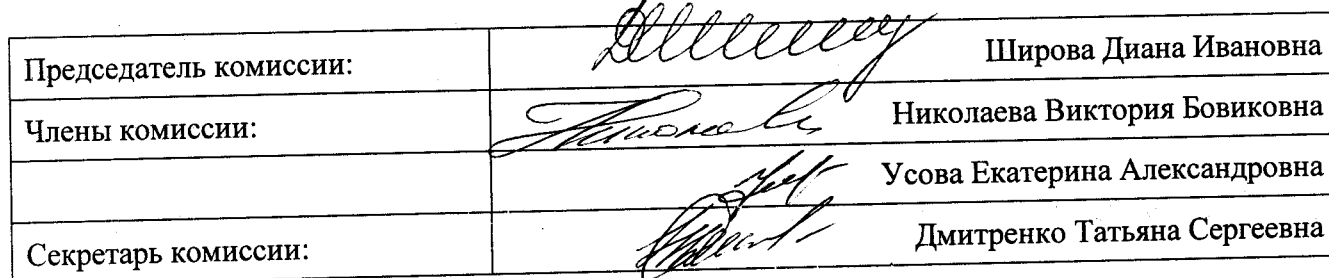 Председатель комиссии: Широва Диана Ивановна
Члены комиссии: Николаева Виктория Бовиковна
Усова Екатерина Александровна
Секретарь комиссии: Дмитренко Татьяна Сергеевна